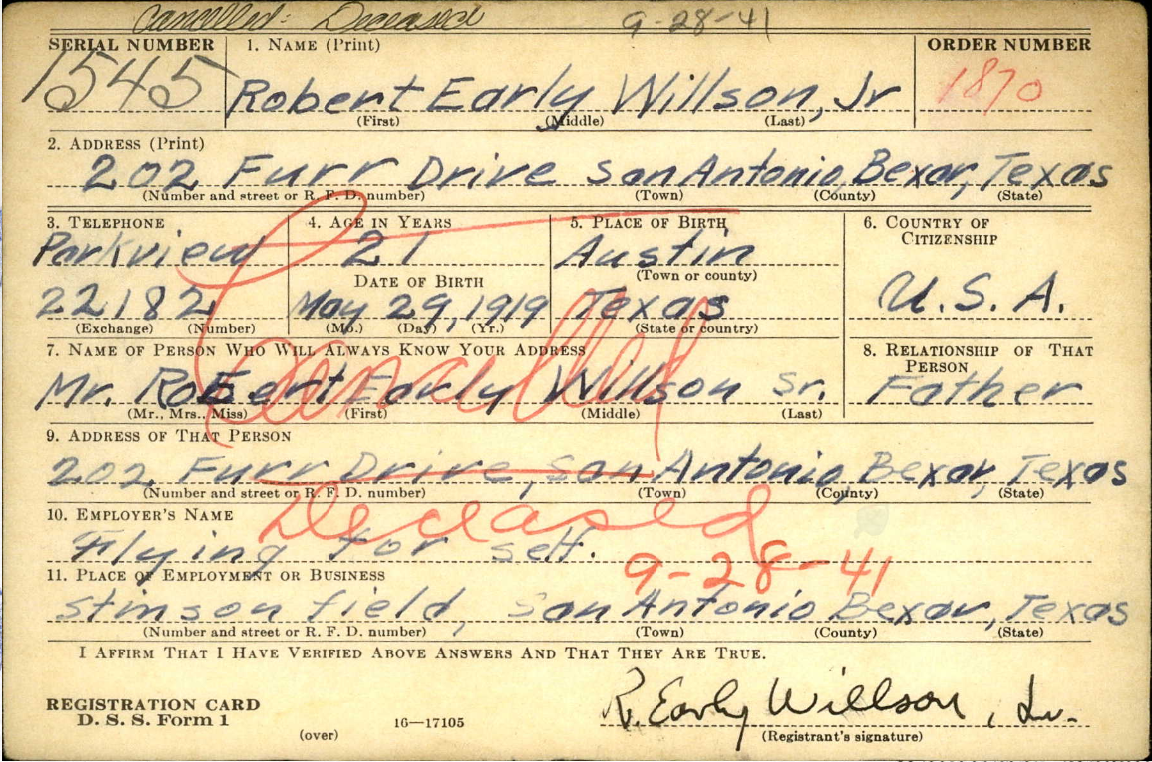 Cancelled: Deceased 9-28-41
SERIAL NUMBER 1. NAME (Print) ORDER NUMBER
1545 Robert Early Willson, Jr 1870
(First) (Middle) (Last)
2. ADDRESS (Print)
202 Furr Drive San Antonio, Bexar, Texas
(Number and street or R. F. D. number) (Town) (County) (State)
3. TELEPHONE 4. AGE IN YEARS 5. PLACE OF BIRTH 6. COUNTRY OF CITIZENSHIP
Parkview 21 Austin
DATE OF BIRTH (Town or county)
22182 May 29, 1919 Texas U.S.A.
(Exchange) (Number) (Mo.) (Day) (Yr.) (State or country)
Cancelled
7. NAME OF PERSON WHO WILL ALWAYS KNOW YOUR ADDRESS 8. RELATIONSHIP OF THAT PERSON
Mr. Robert Early Willson Sr. Father
(Mr., Mrs., Miss) (First) (Middle) (Last)
9. ADDRESS OF THAT PERSON
202 Furr Drive, San Antonio, Bexar, Texas
(Number and street or R. F. D. number) (Town) (County) (State)
Deceased
10. EMPLOYER'S NAME
Flying for self.
9-28-41
11. PLACE OF EMPLOYMENT OR BUSINESS
Stinson field, San Antonio Bexar, Texas
(Number and street or R. F. D. number) (Town) (County) (State)
I AFFIRM THAT I HAVE VERIFIED ABOVE ANSWERS AND THAT THEY ARE TRUE.
REGISTRATION CARD
D. S. S. Form 1 16—17105 R. Early Willson, Jr.
(over) (Registrant's signature)